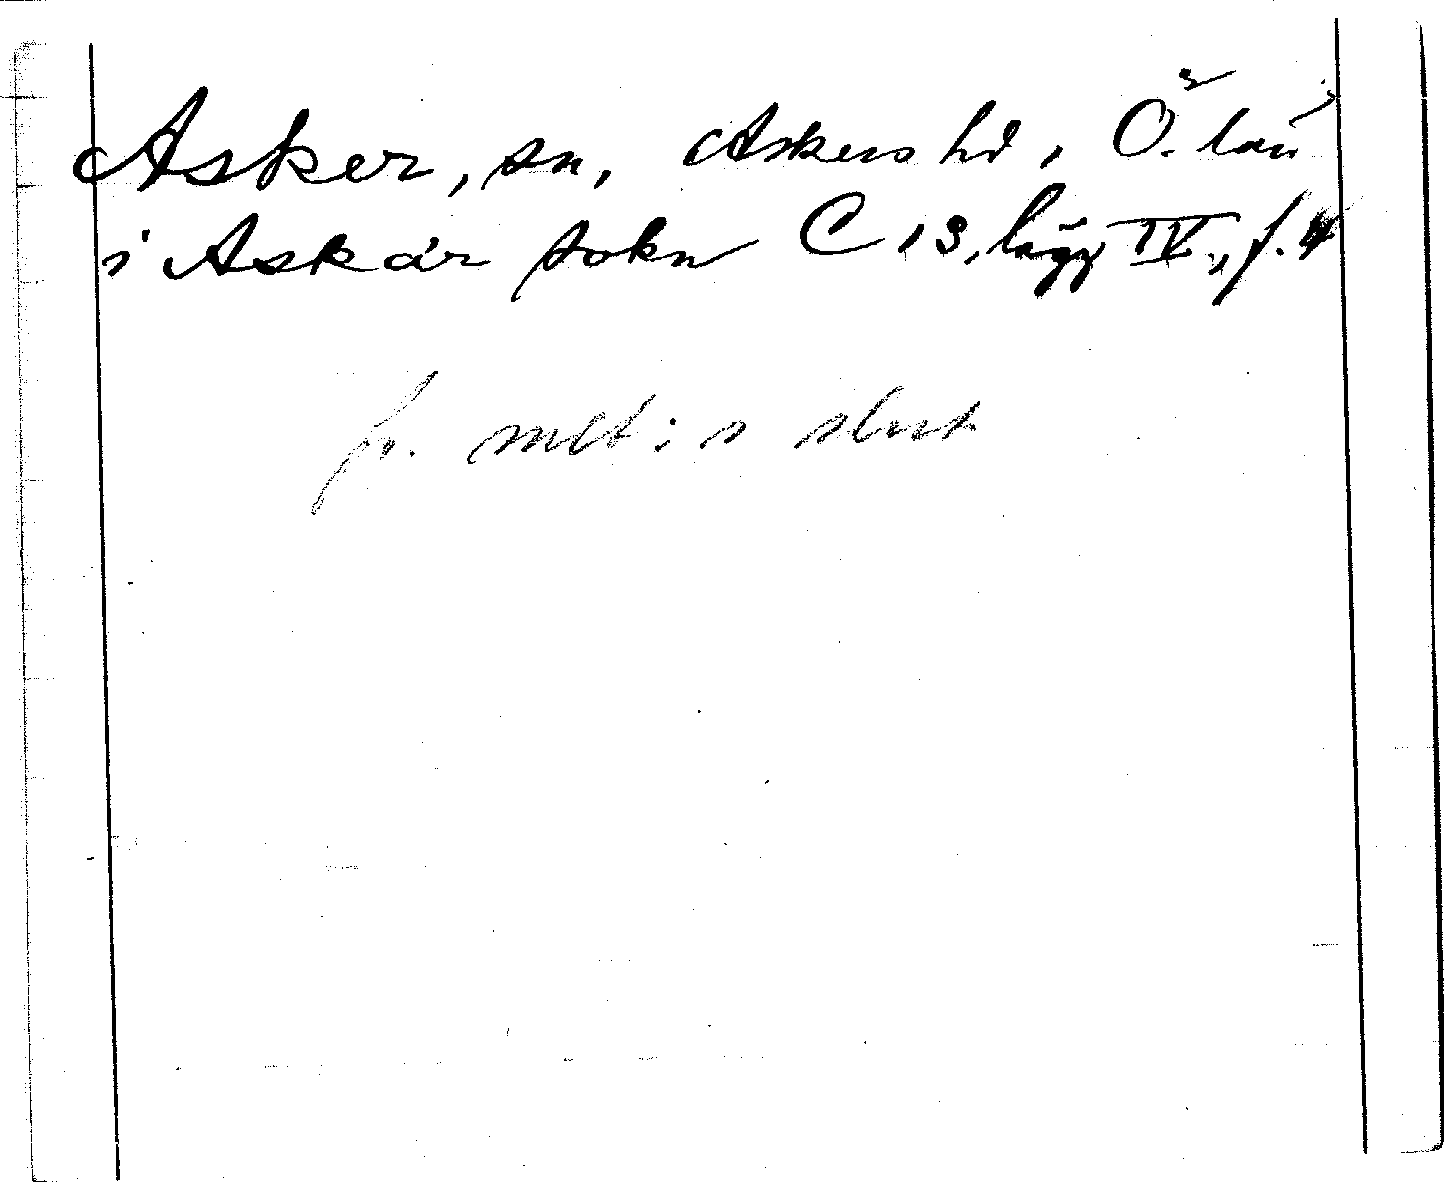 Asker, sn, Askers hd, Ö. län
i Askär sokn C 13, lägg IV, f. 4
fr. mlt: s slut